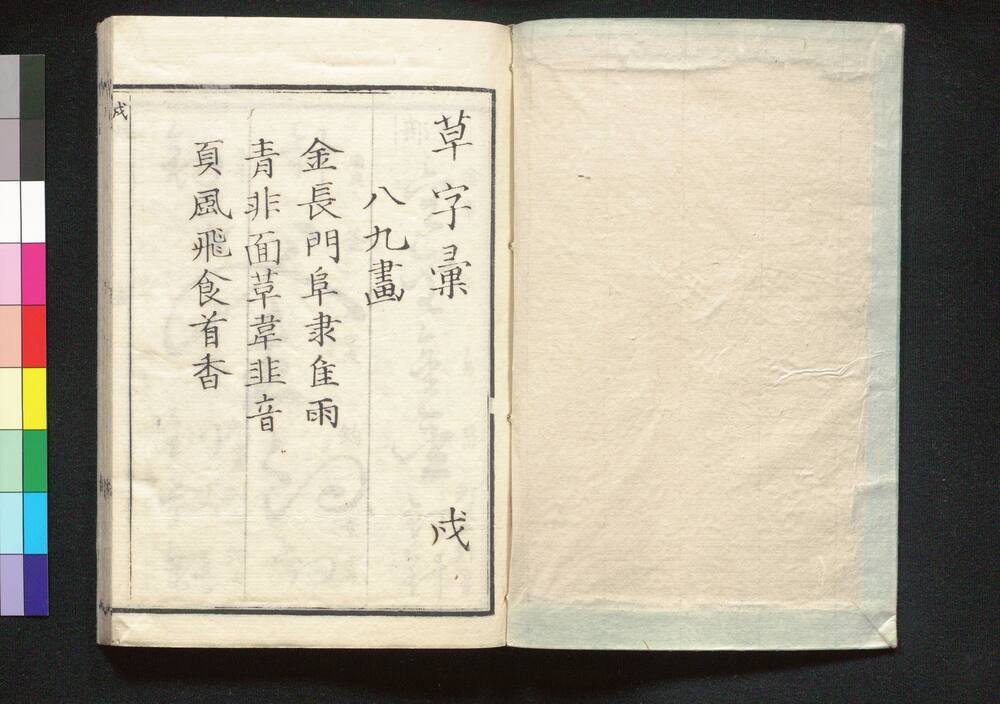 草字彙 戌
八九畫
金長門阜隶隹雨
青非面革韋韭音
頁風飛食首香
戌